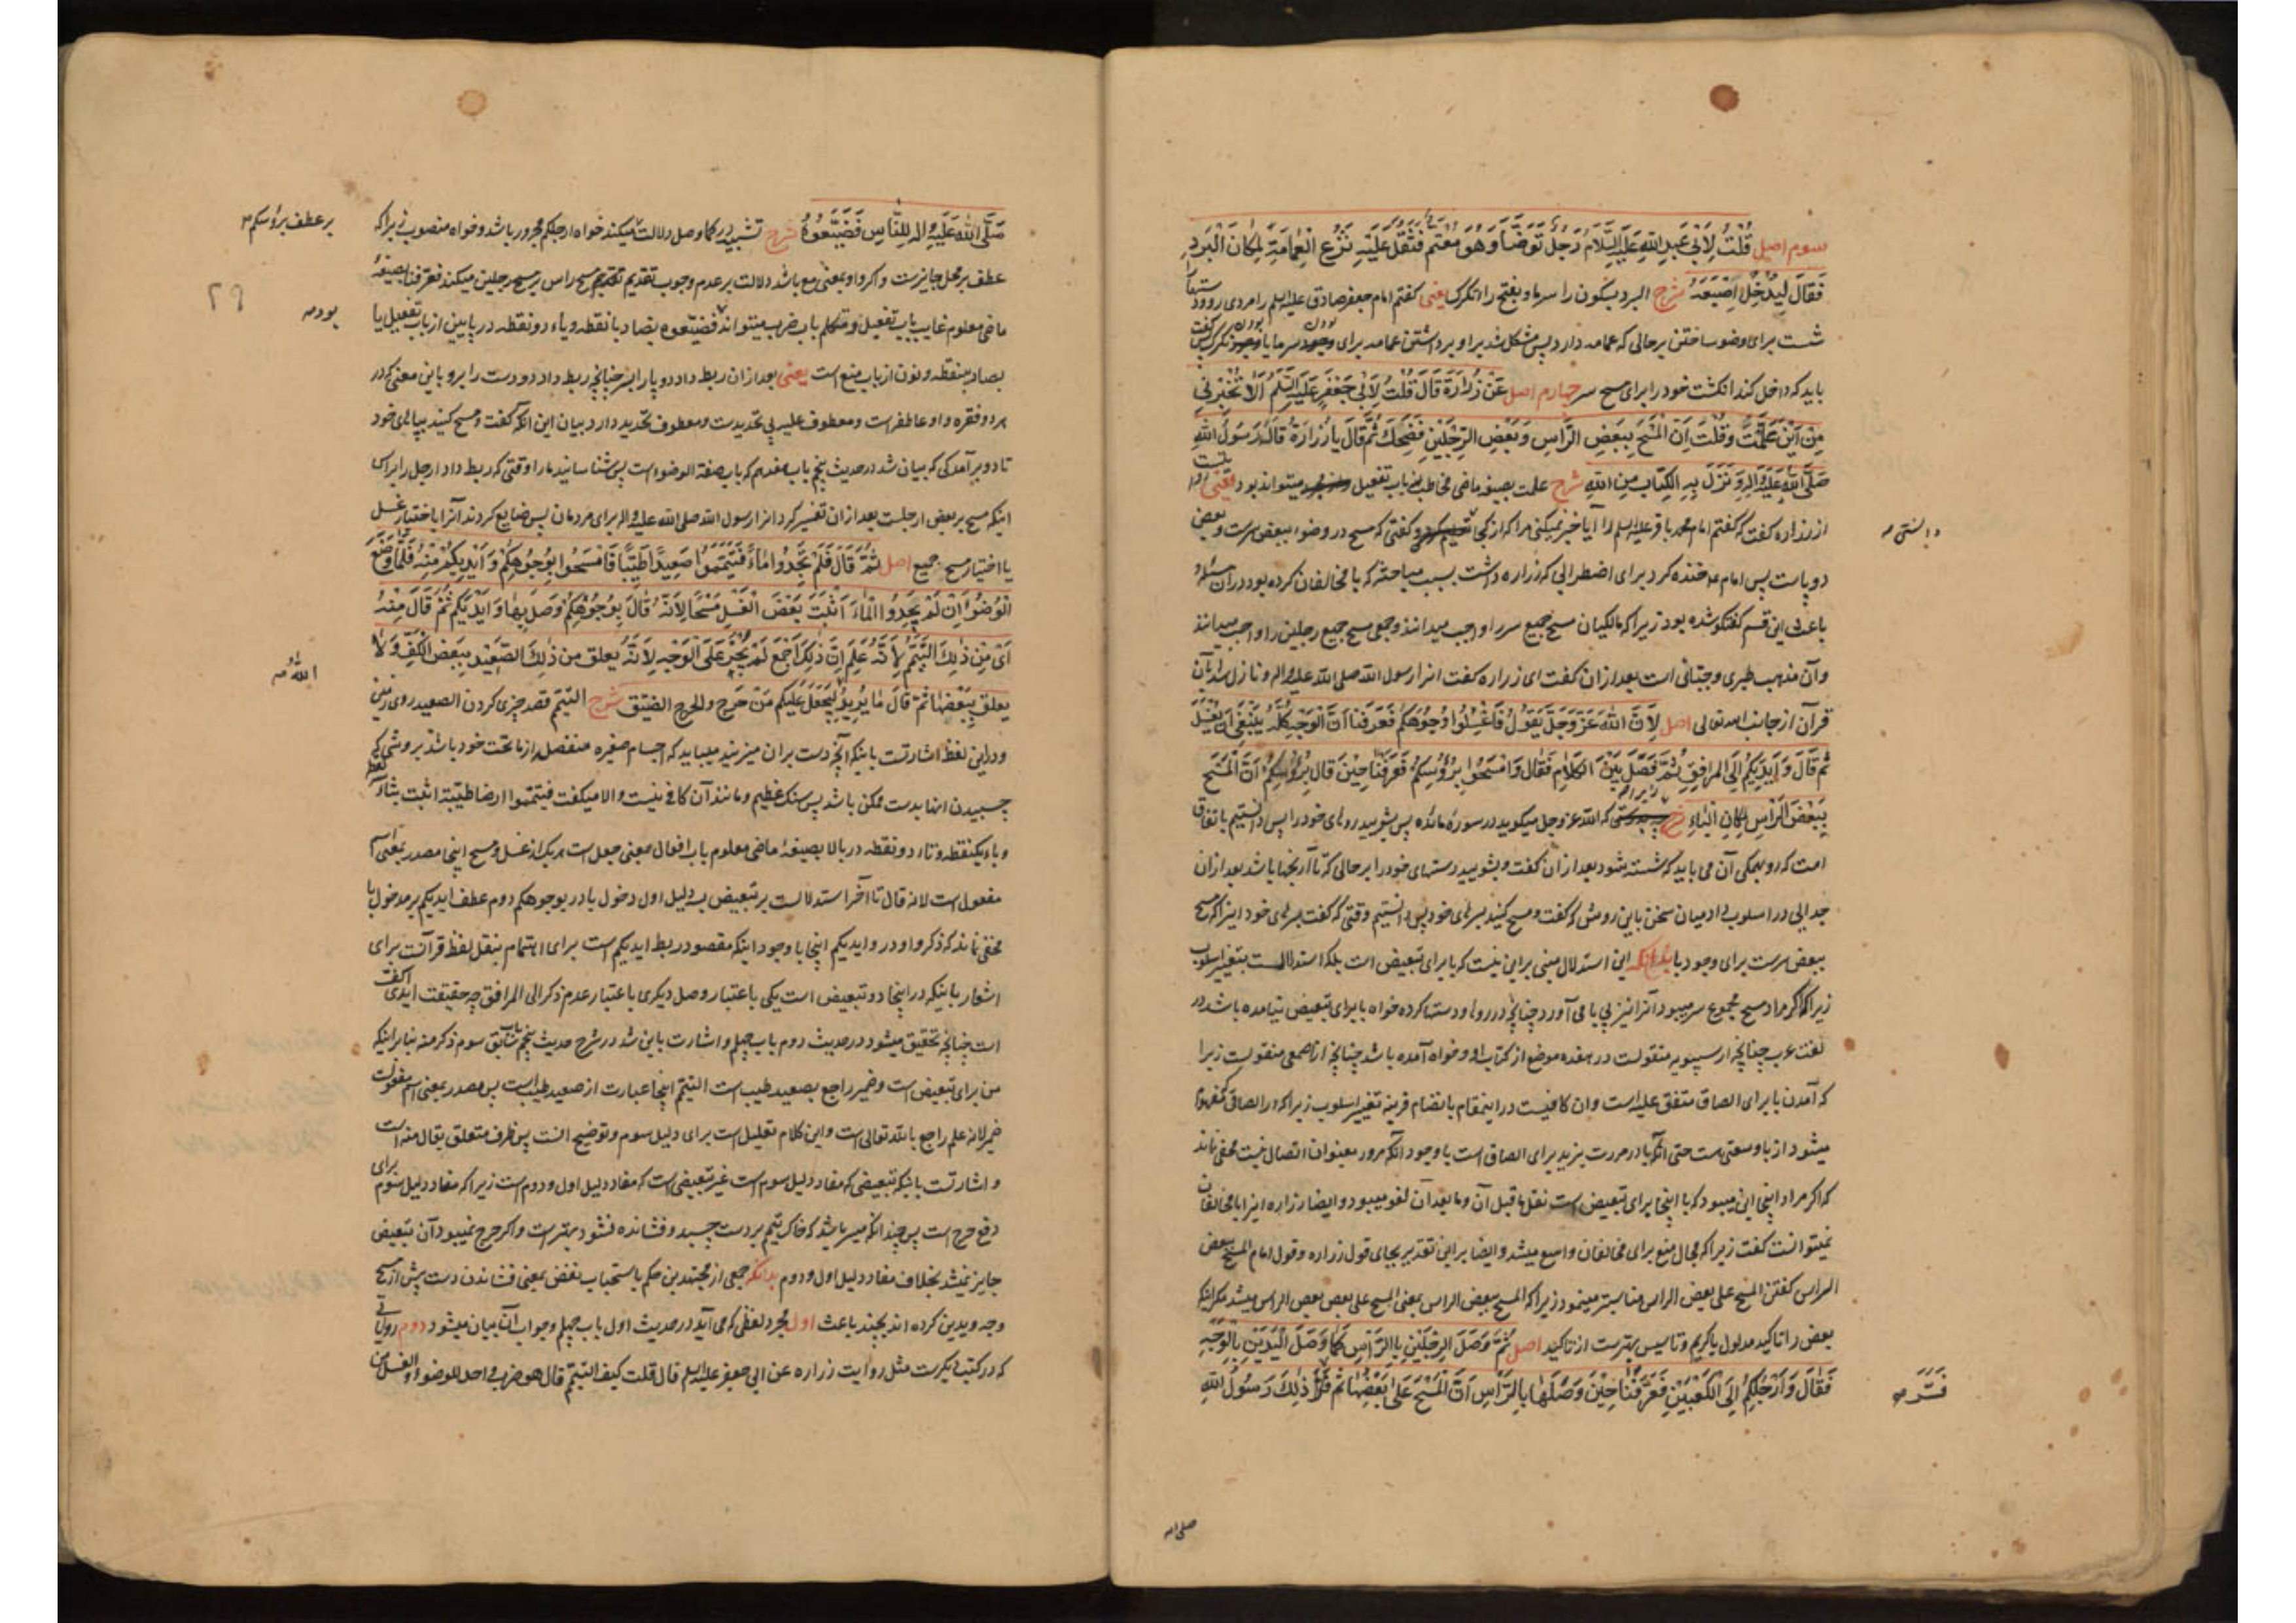 سوم اصل قُلْتُ لِأَبِي عَبْدِ اللَّهِ عَلَيْهِ السَّلَامُ رَجُلٌ تَوَضَّأَ وَهُوَ مُعْتَمٌّ فَثَقُلَ عَلَيْهِ نَزْعُ الْعِمَامَةِ لِمَكَانِ الْبَرْدِ
فَقَالَ لِيُدْخِلْ إِصْبَعَهُ شرح البرد بسکون را سرما و بفتح را تگرک یعنی گفتم امام جعفر صادق علیه السلم را مردی رو و دستها
شست برای وضو ساختن برحالی که عمامه دارد پس مشکل شد بر او برداشتن عمامه برای بودن سرما یا بودن تگرک پس گفت
باید که داخل کند انگشت خود را برای مسح سر چهارم اصل عَنْ زُرَارَةَ قَالَ قُلْتُ لِأَبِي جَعْفَرٍ عَلَيْهِ السَّلَمُ أَلَا تُخْبِرُنِي
مِنْ أَيْنَ عَلِمْتَ وَقُلْتَ أَنَّ الْمَسْحَ بِبَعْضِ الرَّأْسِ وَبَعْضِ الرِّجْلَيْنِ فَضَحِكَ ثُمَّ قَالَ يَا زُرَارَةُ قَالَهُ رَسُولُ اللَّهِ
صَلَّى اللَّهُ عَلَيْهِ وَآلِهِ وَنَزَلَ بِهِ الْكِتَابُ مِنَ اللَّهِ شرح علمت بصیغه ماضی مخاطب باب تفعیل میتواند بود یعنی روایت
از زراره گفت که گفتم امام محمد باقر علیه السلم را آیا خبر نمیکنی مرا که از کجا دانستی و گفتی که مسح در وضو ببعض سرست و بعض
دو پاست پس امام ع خنده کرد برای اضطرابی که زراره داشت بسبب مباحثه که با مخالفان کرده بود در آن مسئله و
باعث این قسم گفتگو شده بود زیرا که مالکیان مسح جمیع سر را واجب میدانند و جمعی مسح جمیع رجلین را واجب میدانند
وآن مذهب طبری و جبائی است بعد از آن گفت ای زراره گفت انرا رسول الله صلی الله علیه واله و نازل شد بآن
قرآن از جانب الله تعالی اصل لِأَنَّ اللَّهَ عَزَّ وَجَلَّ يَقُولُ فَاغْسِلُوا وُجُوهَكُمْ فَعَرَفْنَا أَنَّ الْوَجْهَ كُلَّهُ يَنْبَغِي أَنْ يُغْسَلَ
ثُمَّ قَالَ وَأَيْدِيَكُمْ إِلَى الْمَرَافِقِ ثُمَّ فَصَّلَ بَيْنَ الْكَلَامِ فَقَالَ وَامْسَحُوا بِرُؤُسِكُمْ فَعَرَفْنَا حِينَ قَالَ بِرُؤُسِكُمْ أَنَّ الْمَسْحَ
بِبَعْضِ الرَّأْسِ لِمَكَانِ الْبَاءِ شرح زیرا که الله عز وجل میگوید در سورهٔ مائده پس بشویید روهای خود را پس دانستیم باتفاق
امت که رو بهمگی آن می باید که شسته شود بعد از ان گفت و بشویید دستهای خود را برحالی که تا آرنجها باشد بعد از ان
جدایی در اسلوب داد میان سخن باین روش که گفت و مسح کنید بسرهای خود پس دانستیم وقتی که گفت بسرهای خود اینرا که مسح
ببعض سرست برای وجود با بدانکه این استدلال مبنی براین نیست که با برای تبعیض است بلکه استدلالست بتغییر اسلوب
زیرا که اگر مراد مسح مجموع سر میبود آنرا نیز بی با می آورد چنانچه در رو و دستها کرده خواه با برای تبعیض نیامده باشد در
لغت عرب چنانچه از سیبویه منقولست در هفده موضع از کتاب او و خواه آمده باشد چنانچه از اصمعی منقولست زیرا
که آمدن با برای الصاق متفق علیه است و ان کافیست در اینمقام بانضمام قرینه تغییر اسلوب زیرا که در الصاق که مفهوم
میشود از با وسعتی هست حتی آنکه با در مررت بزید برای الصاق است با وجود آنکه مرور بعنوان اتصال نیست مخفی نماند
که اگر مراد اینجا این میبود که با اینجا برای تبعیض است نقل ما قبل آن و ما بعد آن لغو میبود و ایضا زراره اینرا با مخالفان
نمیتوانست گفت زیرا که مجال منع برای مخالفان واسع میشد و ایضا براین تقدیر بجای قول زراره و قول امام المسح ببعض
الراس گفتن المسح علی بعض الراس مناسبتر مینمود زیرا که المسح ببعض الراس بمعنی المسح علی بعض بعض الراس میشد مگر اینکه
بعض را تاکید مدلول با گریم و تاسیس بهترست از تاکید اصل ثُمَّ وَصَلَ الرِّجْلَيْنِ بِالرَّأْسِ كَمَا وَصَلَ الْيَدَيْنِ بِالْوَجْهِ
فَقَالَ وَأَرْجُلِكُمْ إِلَى الْكَعْبَيْنِ فَعَرَفْنَا حِينَ وَصَلَهَا بِالرَّأْسِ أَنَّ الْمَسْحَ عَلَى بَعْضِهَا ثُمَّ ذَلِكَ رَسُولُ اللَّهِ
دانستی صه
فَسَّرَ صه
صلی الله
صَلَّى اللَّهُ عَلَيْهِ وَالِهِ لِلنَّاسِ فَضَيَّعُوهُ شرح تشبیه در کما وصل دلالت میکند خواه ارجلکم مجرور باشد و خواه منصوب زیرا که
عطف بر محل جایزست و اگر واو بمعنی مع باشد دلالت بر عدم وجوب تقدیم مسح راس بر مسح رجلین میکند فعرفنا بصیغهٔ
ماضی معلوم غایب باب تفعیل و متکلم باب ضرب میتواند فضیعوه بضاد با نقطه و یاء دو نقطه در پایین از باب تفعیل یا
بصاد بینقطه و نون از باب منع است یعنی بعد از ان ربط داد دو پا را بسر چنانچه ربط داد دو دست را برو باین معنی که در
هر دو فقره واو عاطفه است و معطوف علیه بی تحدیدست و معطوف تحدید دارد بیان این آنکه گفت و مسح کنید بپاهای خود
تا دو برآمدگی که بیان شد در حدیث پنجم باب هفدهم که باب صفة الوضوء است پس شناسانید ما را وقتی که ربط داد ارجل را براس
اینکه مسح بر بعض ارجلست بعد از ان تفسیر کرد انرا رسول الله صلی الله علیه واله برای مردمان پس ضایع کردند آنرا باختیار غسل
یا اختیار مسح جمیع اصل ثُمَّ قَالَ فَلَمْ تَجِدُوا مَاءً فَتَيَمَّمُوا صَعِيدًا طَيِّبًا فَامْسَحُوا بِوُجُوهِكُمْ وَأَيْدِيكُمْ مِنْهُ فَلَمَّا وَضَعَ
الْوُضُوءَ إِنْ لَمْ يَجِدُوا الْمَاءَ أَثْبَتَ بَعْضَ الْغَسْلِ مَسْحًا لِأَنَّهُ قَالَ بِوُجُوهِكُمْ وَصَلَ بِهَا وَأَيْدِيَكُمْ ثُمَّ قَالَ مِنْهُ
أَيْ مِنْ ذَلِكَ التَّيَمُّمِ لِأَنَّهُ عَلِمَ أَنَّ ذَلِكَ أَجْمَعَ لَمْ يَجْرِ عَلَى الْوَجْهِ لِأَنَّهُ يعلق مِنْ ذَلِكَ الصَّعِيدِ بِبَعْضِ الْكَفِّ وَلَا
يعلق بِبَعْضِهَا ثُمَّ قَالَ مَا يُرِيدُ لِيَجْعَلَ عَلَيْكُمْ مِنْ حَرَجٍ والحرج الضیق شرح التیمم قصد چیزی کردن الصعید روی زمین
و در این لفظ اشارتست باینکه آنچه دست بران میزنید میباید که اجسام صغیره منفصله از ماتحت خود باشد بروشی که
چسبیدن انها بدست ممکن باشد پس سنگ عظیم و مانند آن کافی نیست و الا میگفت فتیمموا ارضا طیبة اثبت بثاء
و باء یکنقطه و تاء دو نقطه در بالا بصیغهٔ ماضی معلوم باب افعال بمعنی جعل است هر یک از غسل و مسح اینجا مصدر بمعنی اسم
مفعول است لانه قال تا آخر استدلالست بر تبعیض بسه دلیل اول دخول با در بوجوهکم دوم عطف ایدیکم بر مدخول با
مخفی نماند که ذکر واو در وایدیکم اینجا با وجود اینکه مقصود ربط ایدیکم است برای اهتمام بنقل لفظ قرآنست برای
اشعار باینکه در اینجا دو تبعیض است یکی باعتبار وصل دیگری باعتبار عدم ذکر الی المرافق چه حقیقت ایدی اکفست
است چنانچه تحقیق میشود در حدیث دوم باب چهلم و اشارت باین شد در شرح حدیث پنجم باب سابق سوم ذکر منه بنابر اینکه
من برای تبعیض است و ضمیر راجع بصعید طیب است التیمم اینجا عبارت از صعید طیب است پس مصدر بمعنی اسم مفعولست
ضمیر لانه علم راجع بالله تعالی است و این کلام تعلیل است برای دلیل سوم و توضیح انست پس ظرف متعلق بقال منه است
و اشارتست باینکه تبعیضی که مفاد دلیل سوم است غیر تبعیضی است که مفاد دلیل اول و دوم است زیرا که مفاد دلیل سوم برای
دفع حرج است پس چندانکه میسر باشد که خاک تیمم بر دست چسبد و فشانده نشود بهتر است و اگر حرج نمیبود آن تبعیض
جایز نمیشد بخلاف مفاد دلیل اول و دوم بدانکه جمعی از مجتهدین حکم باستحباب نفض بمعنی فشاندن دست پیش از مسح
وجه و یدین کرده اند بچند باعث اول مجرد لفظی که می آید در حدیث اول باب چهلم و جواب آن بیان میشود دوم روایاتی
که در کتب دیگرست مثل روایت زراره عن ابی جعفر علیه السلم قال قلت کیف التیمم قال هو ضرب واحد للوضوء والغسل من
بر عطف برؤسکم
بود صه
الله صه
۲۹